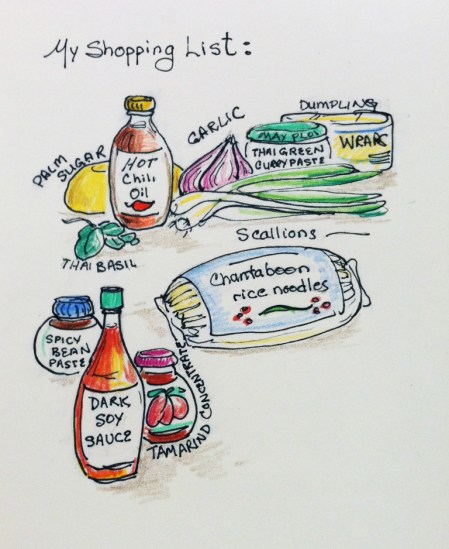 My Shopping List:
DUMPLING
WRAPS
GARLIC
MAE PLOI
THAI GREEN
CURRY PASTE
PALM
SUGAR
HOT
Chili
Oil
Scallions
THAI BASIL
Chantaboon
rice noodles
SPICY
BEAN
PASTE
DARK
SOY
SAUCE
TAMARIND CONCENTRATE